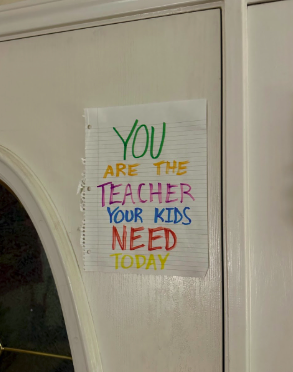 YOU
ARE THE
TEACHER
YOUR KIDS
NEED
TODAY